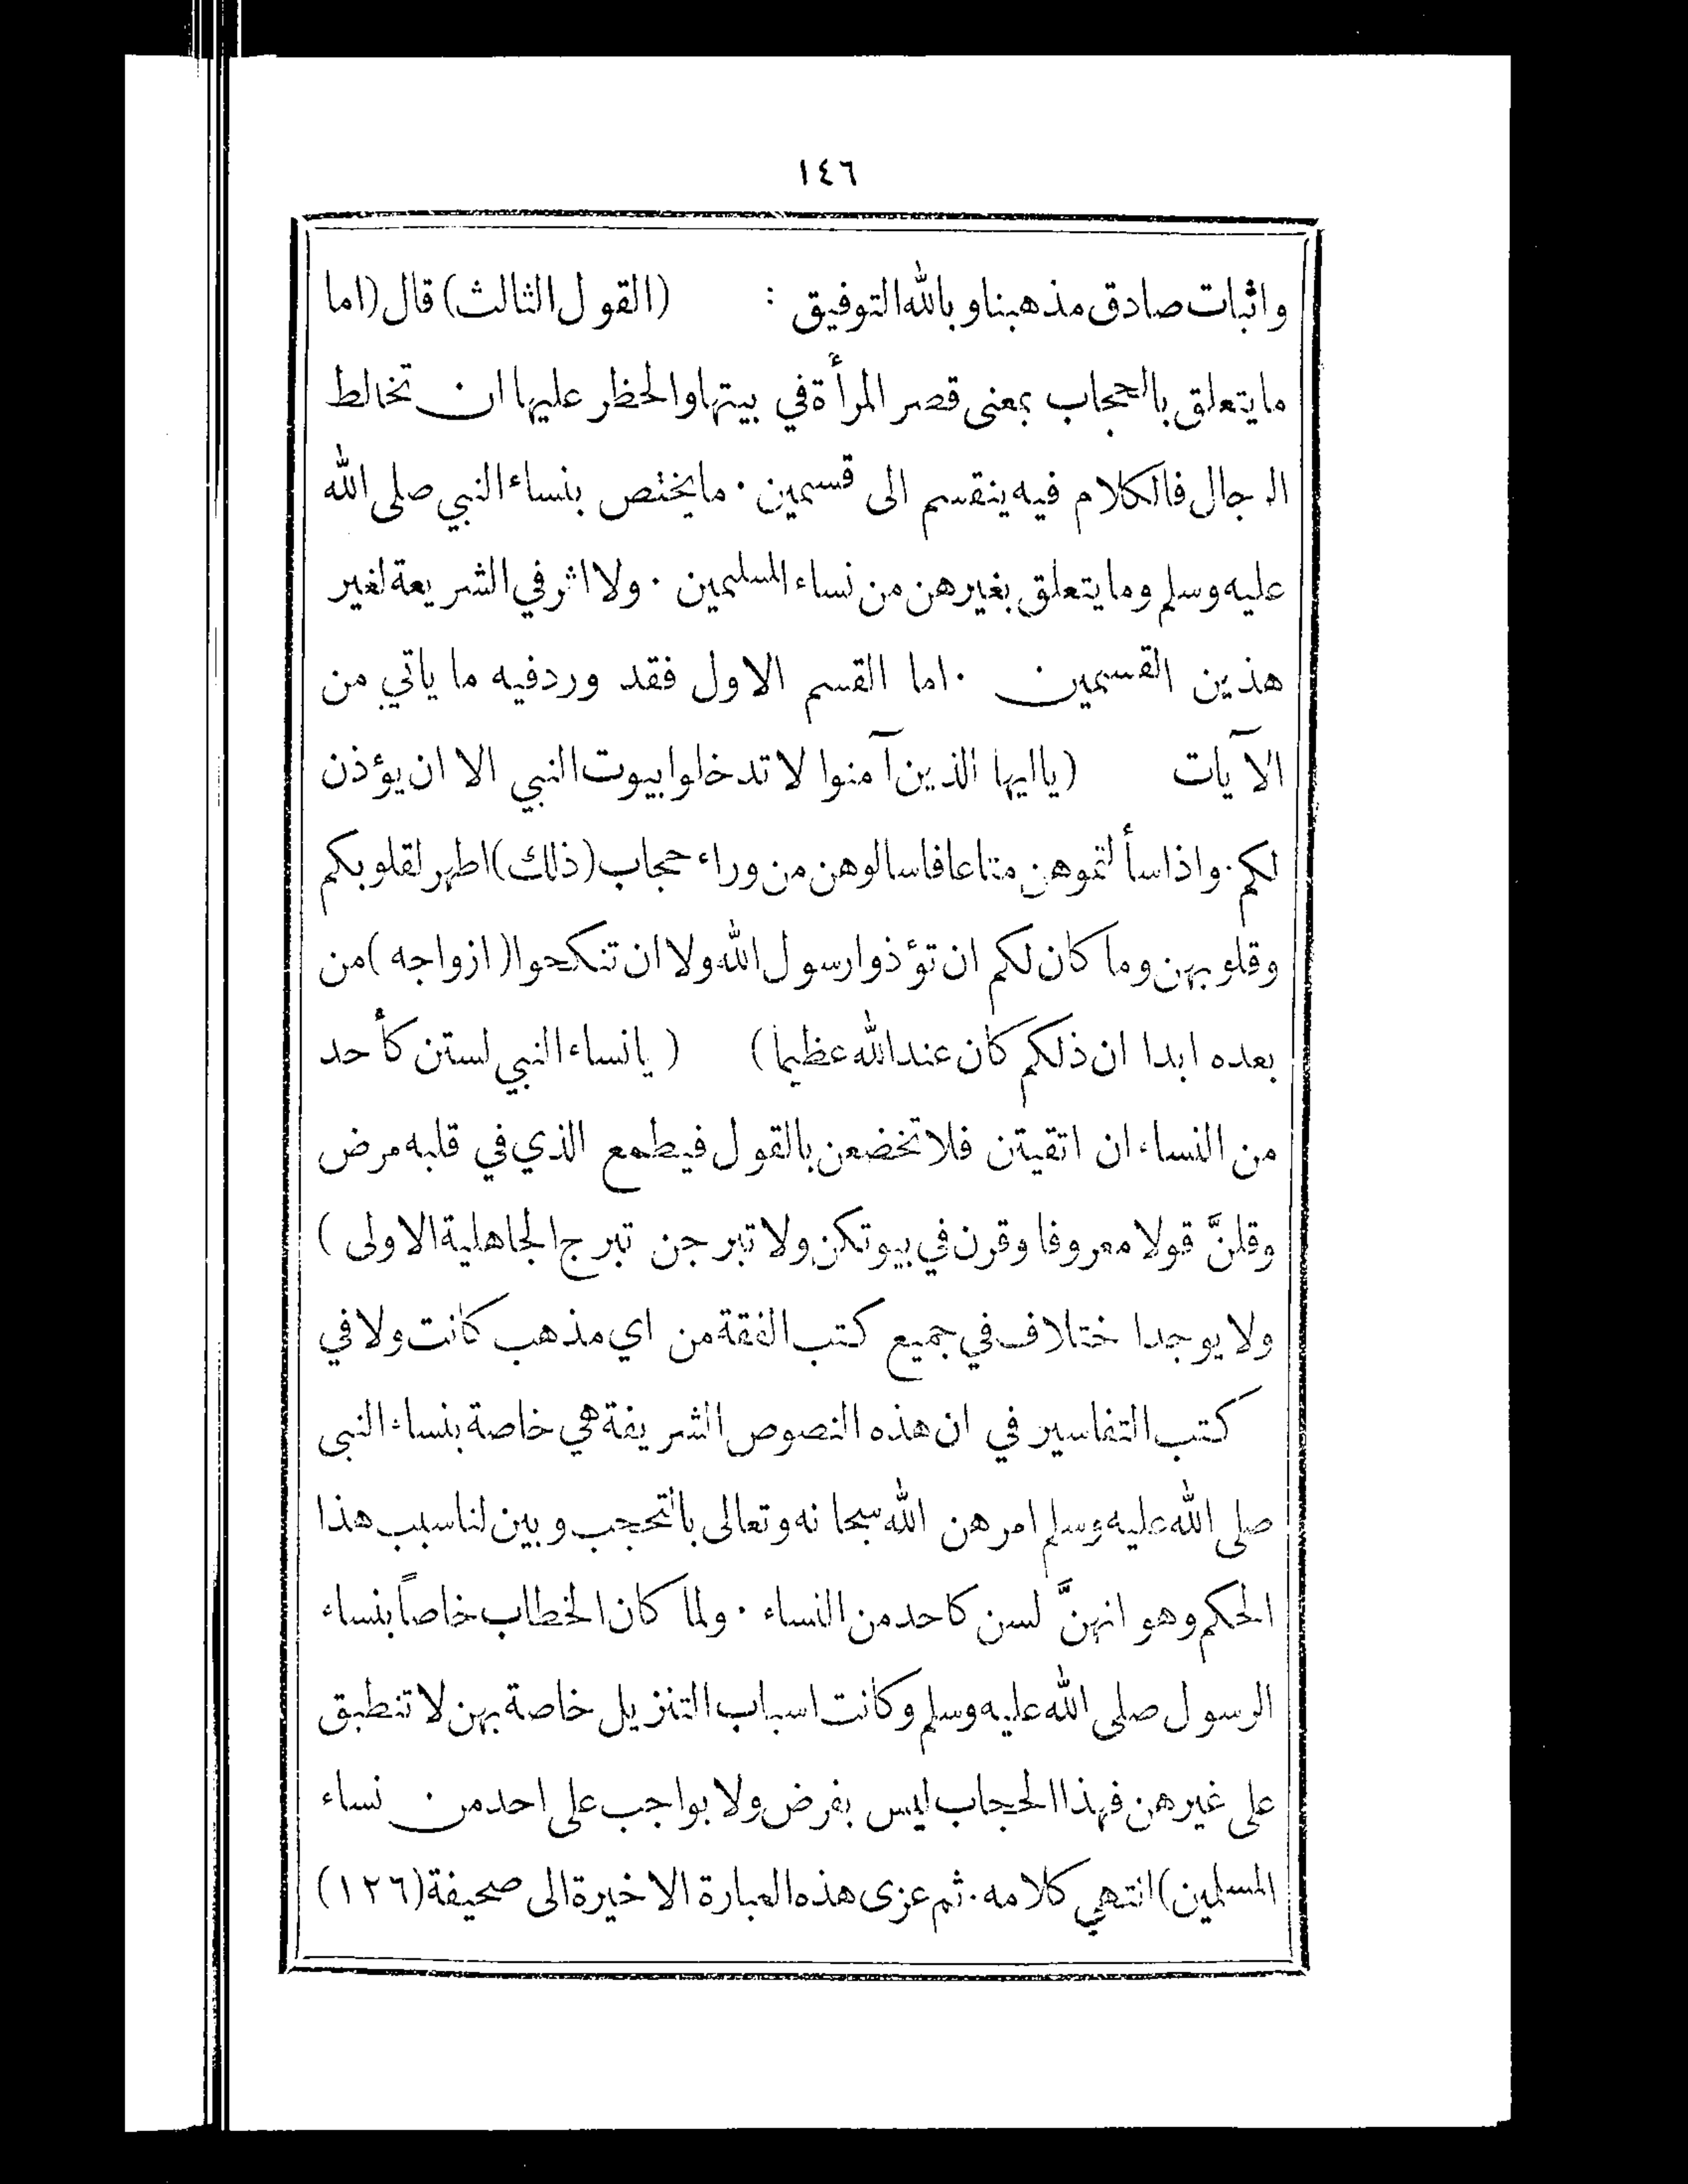 ١٤٦
واثبات صادق مذهبنا وبالله التوفيق : (القول الثالث) قال (اما
ما يتعلق بالحجاب بمعنى قصر المرأة في بيتها والحظر عليها ان تخالط
الرجال فالكلام فيه ينقسم الى قسمين . ما يختص بنساء النبي صلى الله
عليه وسلم وما يتعلق بغيرهن من نساء المسلمين . ولا اثر في الشريعة لغير
هذين القسمين . اما القسم الاول فقد ورد فيه ما ياتي من
الآيات (يا ايها الذين آمنوا لا تدخلوا بيوت النبي الا ان يؤذن
لكم . واذا سألتموهن متاعا فاسالوهن من وراء حجاب (ذلك) اطهر لقلوبكم
وقلوبهن وما كان لكم ان تؤذوا رسول الله ولا ان تنكحوا (ازواجه) من
بعده ابدا ان ذلكم كان عند الله عظيما) (يا نساء النبي لستن كأحد
من النساء ان اتقيتن فلا تخضعن بالقول فيطمع الذي في قلبه مرض
وقلنَّ قولا معروفا وقرن في بيوتكن ولا تبرجن تبرج الجاهلية الاولى )
ولا يوجد اختلاف في جميع كتب الفقة من اي مذهب كانت ولا في
كتب التفاسير في ان هذه النصوص الشريفة هي خاصة بنساء النبي
صلى الله عليه وسلم امرهن الله سبحانه وتعالى بالتحجب وبين لنا سبب هذا
الحكم وهو انهنَّ لسن كاحد من النساء . ولما كان الخطاب خاصاً بنساء
الرسول صلى الله عليه وسلم وكانت اسباب التنزيل خاصة بهن لا تنطبق
على غيرهن فهذا الحجاب ليس بفرض ولا بواجب على احد من نساء
المسلمين) انتهي كلامه . ثم عزى هذه العبارة الاخيرة الى صحيفة (١٢٦)